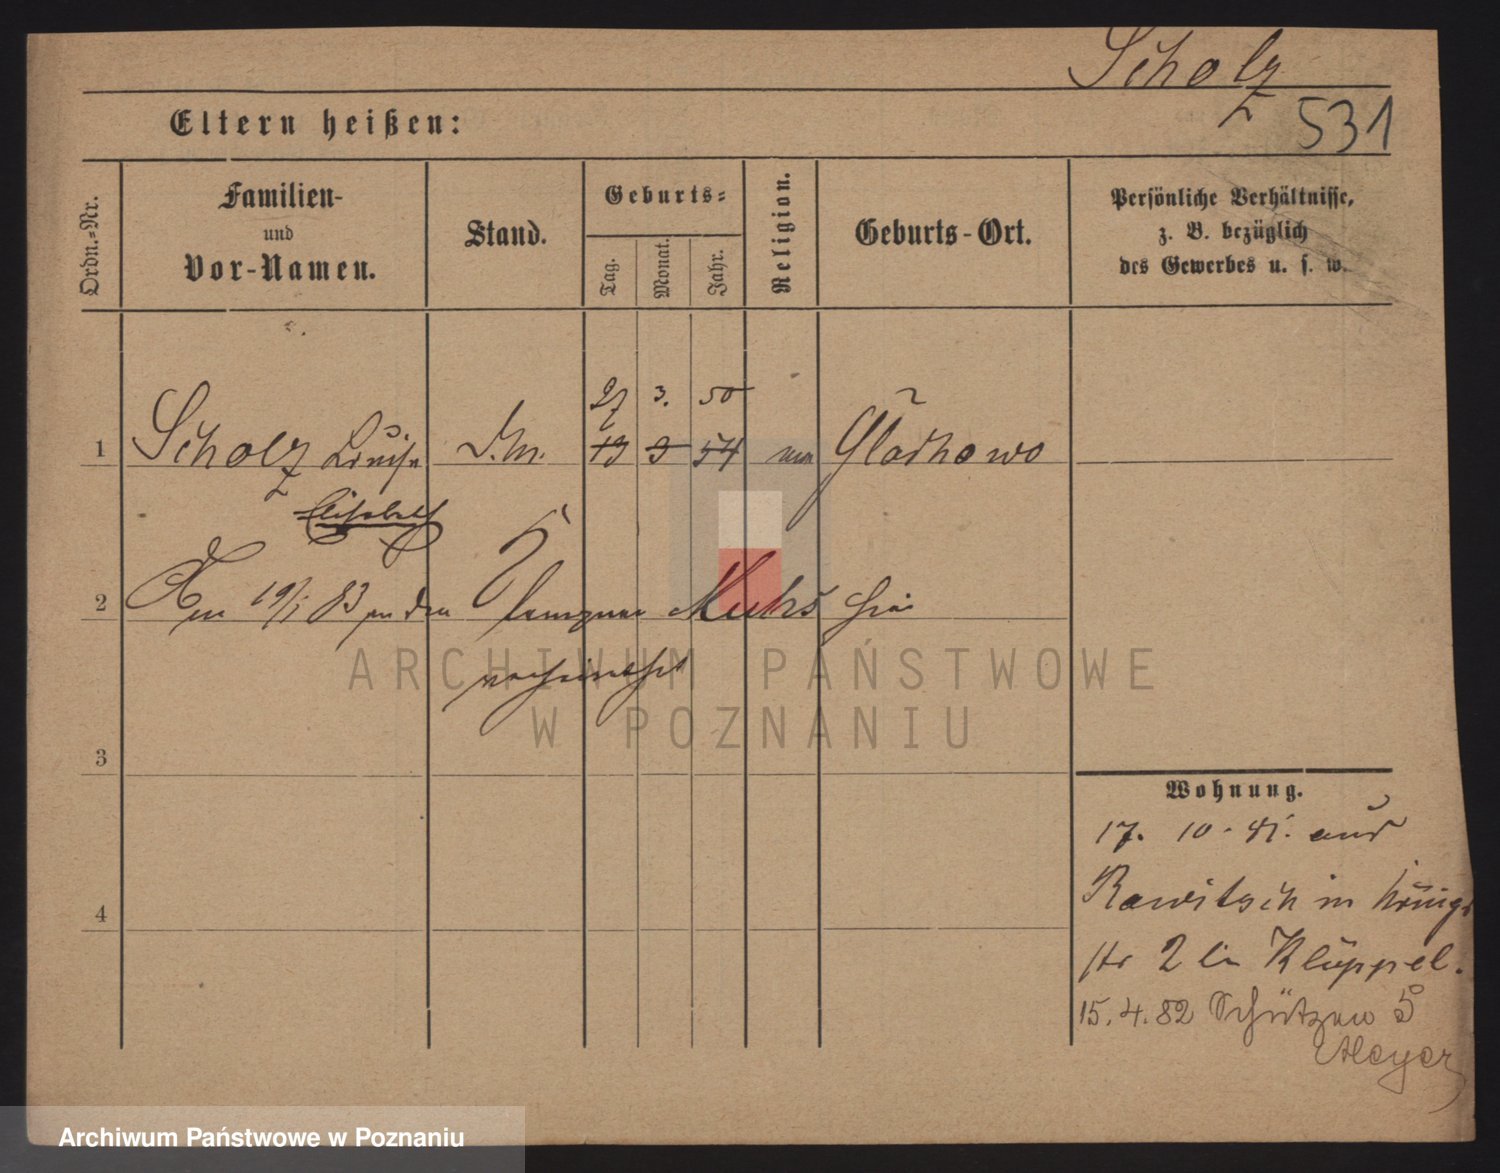 Scholz
531
Eltern heißen:
Ordn.-Nr.
Familien-
und
Vor-Namen.
Stand.
Geburts-
Tag.
Monat.
Jahr.
Religion.
Geburts-Ort.
Persönliche Verhältnisse,
z. B. bezüglich
des Gewerbes u. s. w.
27 3. 50
1 Scholz Louise 13 3 54 Gladkowo
Elisabeth
2 Am 19/1 83 an den hier
verheirathet
ARCHIWUM PAŃSTWOWE
W POZNANIU
3
4
Wohnung.
17. 10. 81. aus
Rawitsch in Königs
str 2 bei Klüppel.
15. 4. 82 Schützen 5
Meyer
Archiwum Państwowe w Poznaniu